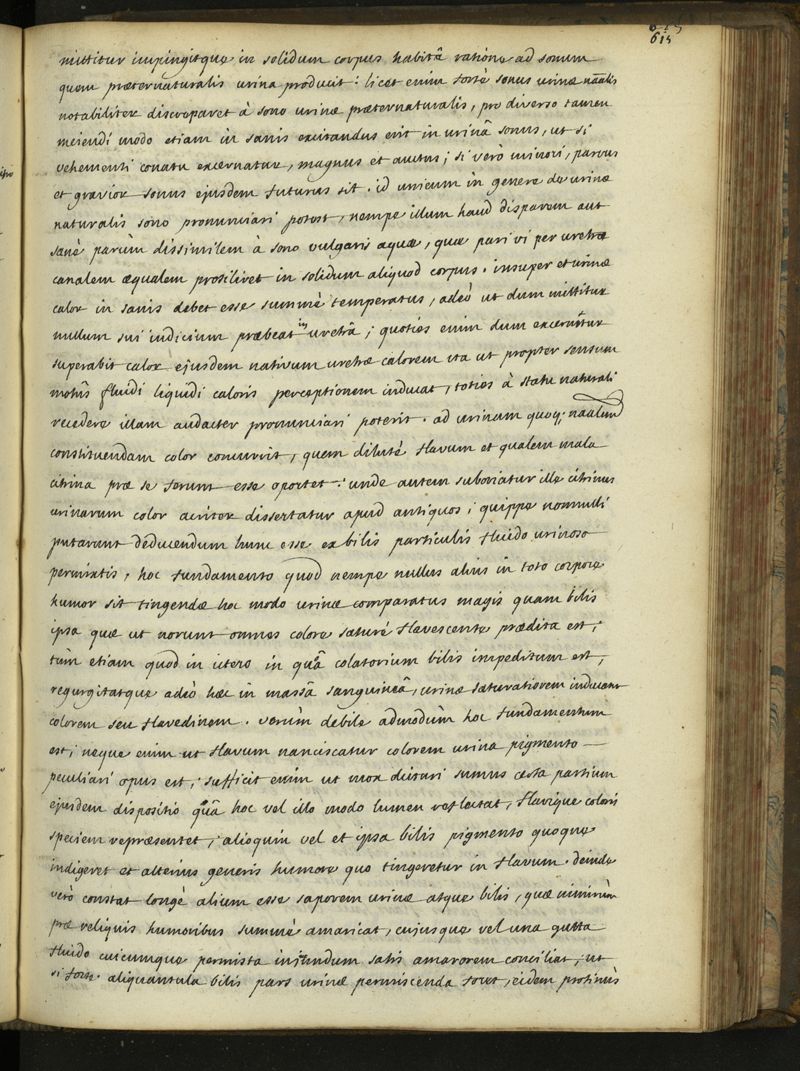 615
615
mittitur impingitque in solidum corpus habitâ ratione ad sonum
quem præternaturalis urina producit: licet enim fortè sonus urinæ nāālis
notabiliter discreparet à sono urinæ præternaturalis, pro diverso tamen
meiendi modo etiam in sanis excitandus erit in urinâ sonus, ut si
vehementi conatu excernatur, magnus et acutus; si verò minori, parvus
et gravior sonus ejusdem futurus sit. id unicum in genere de urinæ
naturalis sono pronunciari potest, nempe illum haud disparem aut
sanè parùm dissimilem à sono vulgaris aquæ, quæ pari vi per uretræ
canalem æqualem prosiliret in solidum aliquod corpus. insuper et urinæ
calor in sanis debet esse summè temperatus, adeò ut dum mittitur
nullum sui indicium præbeat in uretrâ; quoties enim dum excernitur
superabit calor ejusdem nativum uretræ calorem ita ut propter sensum
motûs fluidi liquidi caloris perceptionem inducat, toties à statu naturali
recedere illam audacter pronunciari poterit. ad urinam quoq; nāālem
constituendam color concurrit, quem dilutè flavum et qualem mala
citrina præ se ferunt esse oportet: unde autem suboriatur ille citrinus
urinarum color acriter dissertatur apud antiquos; quippe nonnulli
putarunt deducendum hunc esse ex bilis particulis fluido urinoso
permixtis, hoc fundamento quod nempe nullus alius in toto corpore
humor sit tingendæ hoc modo urinæ comparatus magis quam bilis
ipsa quæ ut norunt omnes colore saturè flavescente prædita est;
tùm etiam quod in ictero in quâ colatorium bilis impeditum est,
regurgitatque adeò hæc in massâ sanguineâ, urinæ saturatiorem inducant
colorem seu flavedinem. verùm debile admodùm hoc fundamentum
est; neque enim ut flavum nanciscatur colorem urina pigmento
peculiari opus est; sufficit enim ut mox dicturi sumus certa partium
ejusdem dispositio quâ hoc vel illo modo lumen reflectat, flavique coloris
speciem repræsentet; alioquin vel et ipsa bilis pigmento quoque
indigeret et alterius generis humore quo tingeretur in flavum. deinde
verò constat longè alium esse saporem urinæ atque bilis, quæ nimirùm
præ reliquis humoribus summè amaricat, cujusque vel una gutta
fluido cuicumque permista injundum satis amarorem conciliat, ut
si forte aliquantula bilis pars urinæ permiscenda foret, eidem protinùs